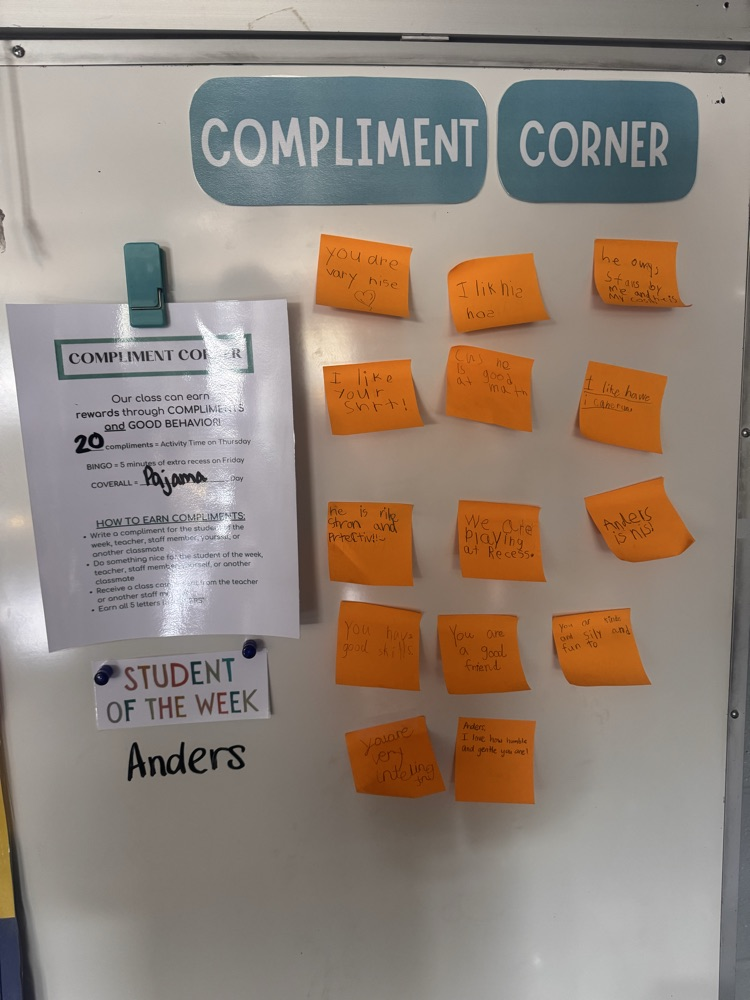 COMPLIMENT CORNER
COMPLIMENT CORNER
Our class can earn
rewards through COMPLIMENTS
and GOOD BEHAVIOR!
20 compliments = Activity Time on Thursday
BINGO = 5 minutes of extra recess on Friday
COVERALL = Pajama Day
HOW TO EARN COMPLIMENTS:
Write a compliment for the student of the
week, teacher, staff member, yourself, or
another classmate
Do something nice for the student of the week,
teacher, staff member, yourself, or another
classmate
Receive a class from the teacher
or another staff
Earn all 5 letters
STUDENT
OF THE WEEK
Anders
you are
vary nise
I lik his
hae
he
Stans by
me and
my
I like
your
Shrt!
he
is good
at math
I like
he is
and
We are
playing
at Recess.
Anders
is nis!
You have
good skills
You are
a good
friend
you
are sily and
fun to
you are
very
Anders
I love how humble
and gentle you are!